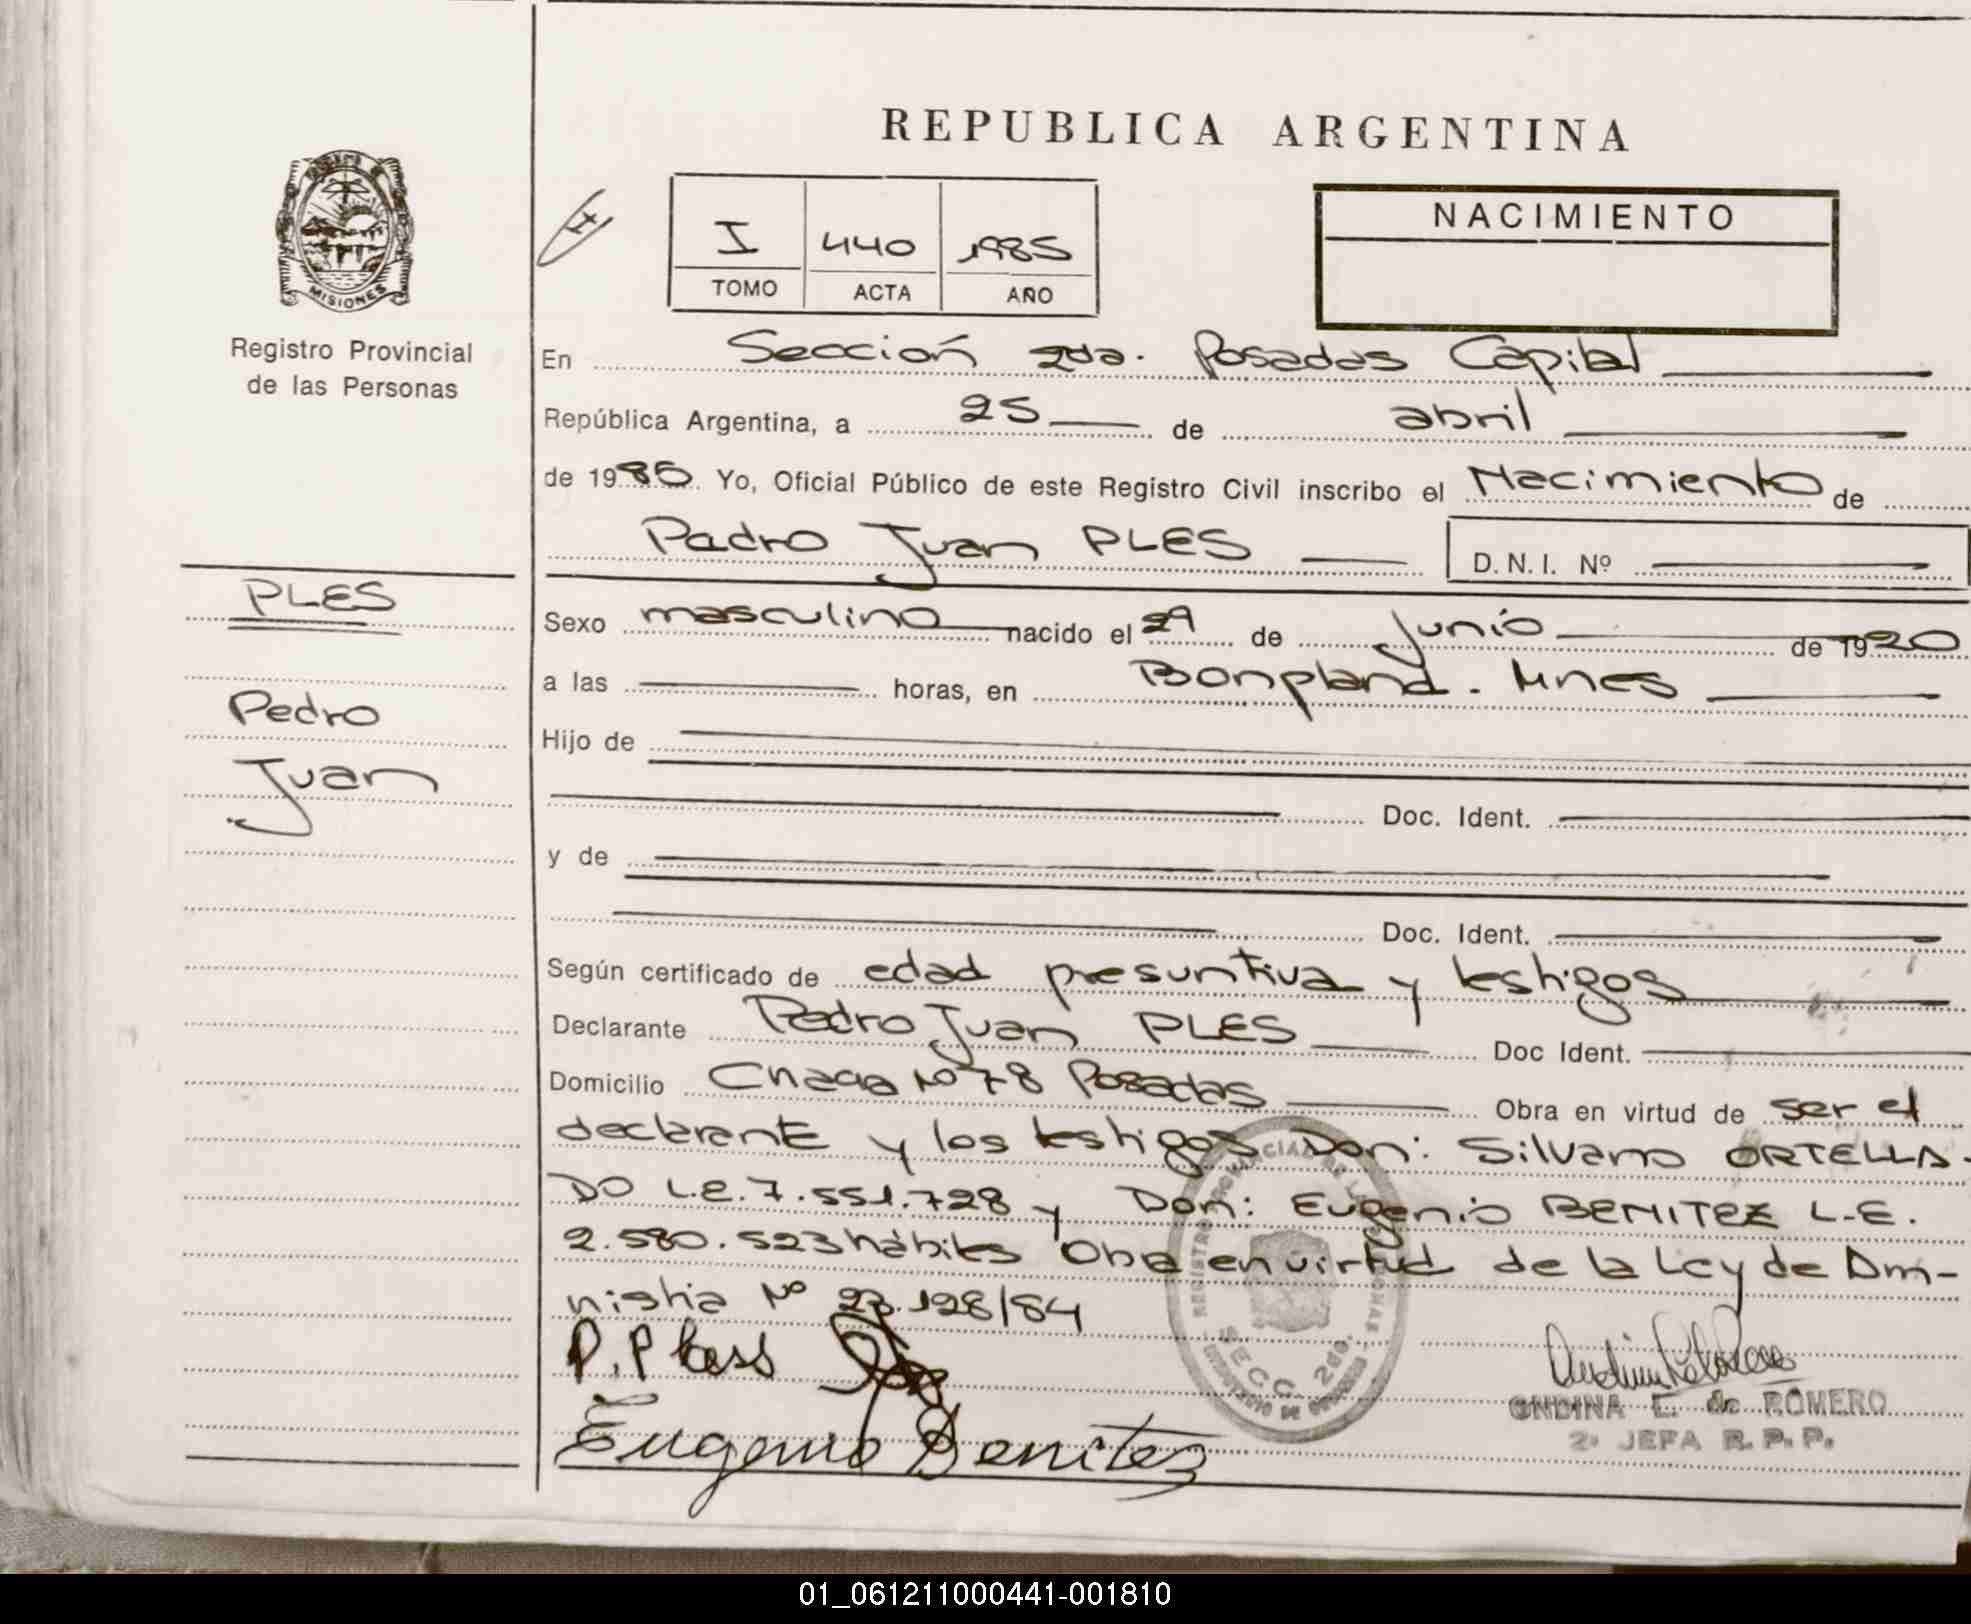 REPUBLICA ARGENTINA
MISIONES
Registro Provincial
de las Personas
I 440 1985
TOMO ACTA AÑO
NACIMIENTO
En Sección 2da. Posadas Capital
República Argentina, a 25 de abril
de 1985. Yo, Oficial Público de este Registro Civil inscribo el Nacimiento de
Pedro Juan PLES D.N.I. Nº
PLES
Pedro
Juan
Sexo masculino nacido el 29 de junio de 1920
a las horas, en Bonpland. Mnes
Hijo de
Doc. Ident.
y de
Doc. Ident.
Según certificado de edad presuntiva y testigos
Declarante Pedro Juan PLES Doc Ident.
Domicilio Chacra Nº 78 Posadas Obra en virtud de ser el
declarante y los testigos Don: Silvano ORTELLA-
DO L.E. 7.551.728 y Don: Eugenio BENITEZ L.E.
2.580.523 hábiles Obra en virtud de la Ley de Am-
nistia Nº 23.128/84
SECC. 2da.
Eugenio Benitez
ONDINA E. de ROMERO
2º JEFA R.P.P.
01_061211000441-001810